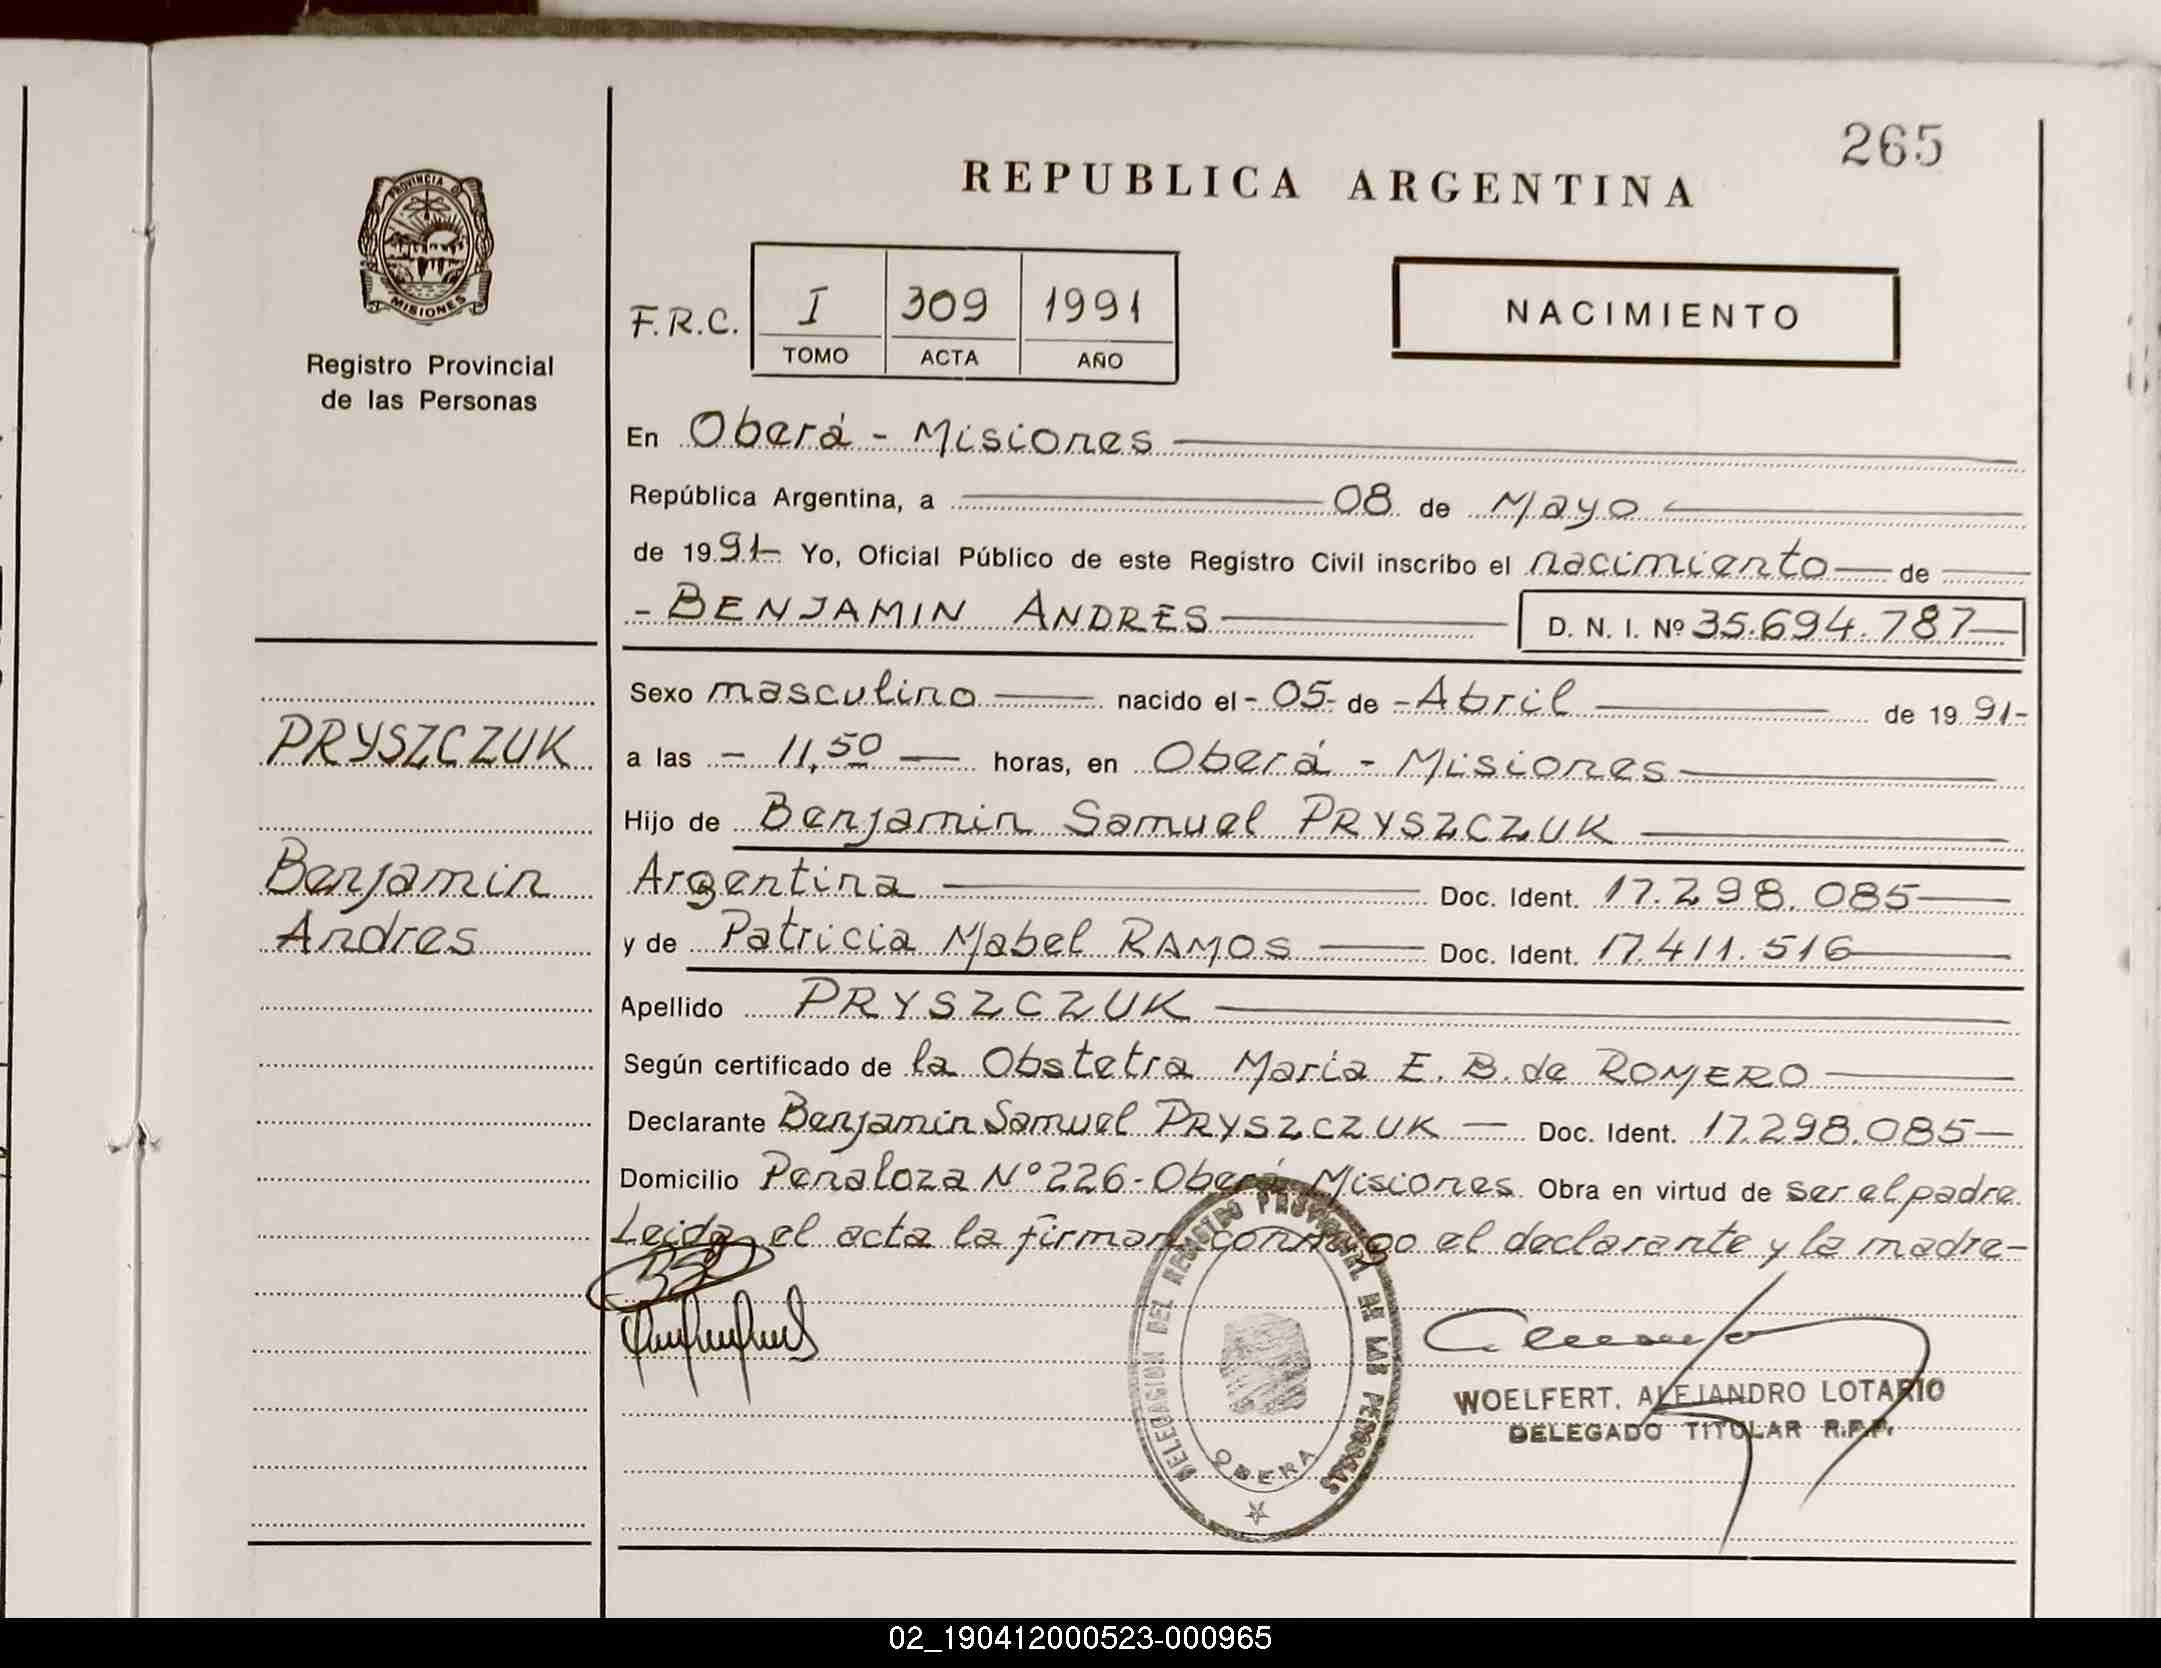 265
REPUBLICA ARGENTINA
PROVINCIA D
MISIONES
Registro Provincial
de las Personas
NACIMIENTO
F.R.C. I 309 1991
TOMO ACTA AÑO
En Oberá - Misiones
República Argentina, a 08 de Mayo
de 1991- Yo, Oficial Público de este Registro Civil inscribo el nacimiento de
- BENJAMIN ANDRES D. N. I. Nº 35.694.787
Sexo masculino nacido el - 05- de - Abril de 19 91-
PRYSZCZUK
a las - 11,50 horas, en Oberá - Misiones
Hijo de Benjamin Samuel PRYSZCZUK
Benjamin
Andres
Argentina Doc. Ident. 17.298.085
y de Patricia Mabel RAMOS Doc. Ident. 17.411.516
Apellido PRYSZCZUK
Según certificado de la Obstetra Maria E. B. de ROMERO
Declarante Benjamin Samuel PRYSZCZUK Doc. Ident. 17.298.085
Domicilio Penaloza Nº 226 - Oberá Misiones Obra en virtud de ser el padre
Leida el acta la firman conmigo el declarante y la madre-
DELEGACION DEL REGISTRO PROVINCIAL DE LAS PERSONAS
OBERA
WOELFERT, ALEJANDRO LOTARIO
DELEGADO TITULAR R.P.P.
02_190412000523-000965